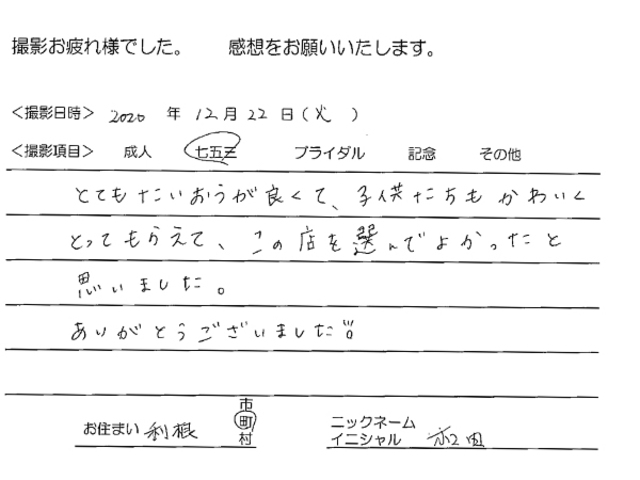 撮影お疲れ様でした。 感想をお願いいたします。
＜撮影日時＞ 2020 年 12月 22 日(火 )
＜撮影項目＞ 成人 七五三 ブライダル 記念 その他
とてもたいおうが良くて、子供たちもかわいく
とってもらえて、この店を選んでよかったと
思いました。
ありがとうございました!!
お住まい 利根 市町村
ニックネーム
イニシャル 和田